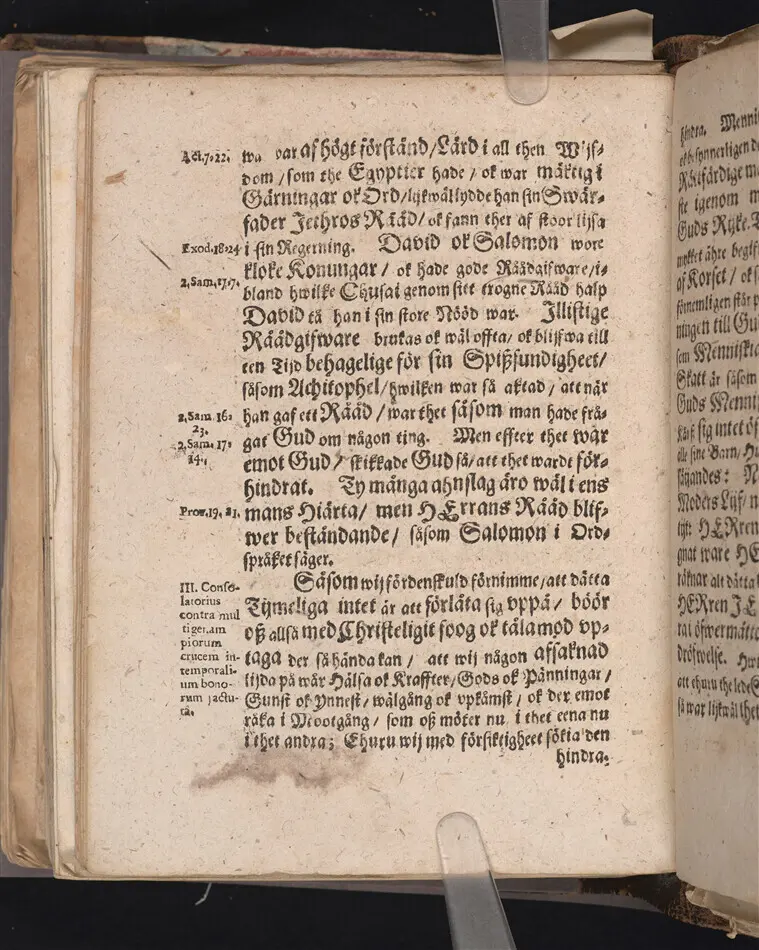 Act. 7. 22.
wa var af högt förständ/Lärd i all then Wijs-
dom/som the Egyptier hade/ok war mäktig i
Gärningar ok Ord/lijkwäl lydde han sin Swär-
fader Jethros Rååd/ok fann ther af stoor lijsa
Exod. 18. 24
i sin Regerning. David ok Salomon wore
kloke Konungar/ok hade gode Råådgifware/i-
2. Sam. 17. 7.
bland hwilke Chusai genom sitt trogne Rååd halp
David tå han i sin store Nööd war. Illistige
Råådgifware brukas ok wäl offta/ok blifwa till
en Tijd behagelige för sin Spißfundigheet/
såsom Achitophel/hwilken war så aktad/att när
2. Sam. 16.
23.
han gaf ett Rååd/war thet såsom man hade frå-
gat Gud om någon ting. Men effter thet war
2. Sam. 17.
14.
emot Gud/skikkade Gud så/att thet wardt för-
hindrat. Ty många ahnslag äro wäl i ens
Prov. 19. 21.
mans Hiärta/men HErrans Rååd blif-
wer beståndande/såsom Salomon i Ord-
språket säger.
III. Conso-
latorius
contra mul
tigenam
piorum
crucem in-
temporali-
um bono-
rum jactu-
ra.
Såsom wij fördenskuld förnimme/att dätta
Tijmeliga intet är att förlåta sig vppå/böör
oß allså med Christeligit foog ok tålamod vp-
taga der så hända kan/att wij någon afsaknad
lijda på wår Hälsa ok Kraffter/Gods ok Pänningar/
Gunst ok Ynnest/wälgång ok vpkämst/ok der emot
råka i Mootgång/som oß möter nu i thet eena nu
i thet andra; Ehuru wij med försiktigheet sökia den
hindra.